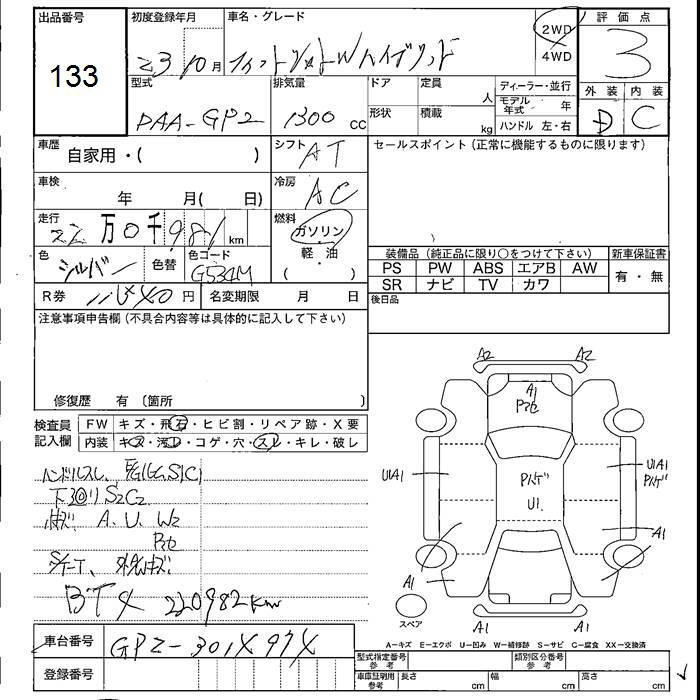 出品番号
133
初度登録年月
23年10月
車名・グレード
フィットシャトルハイブリッド
2WD
4WD
評価点
3
型式
DAA-GP2
排気量
1300 cc
ドア
定員
人
形状
積載
kg
ディーラー・並行
モデル年式 年
ハンドル 左・右
外装
内装
D
C
車歴
自家用・( )
シフト
AT
セールスポイント(正常に機能するものに限ります)
車検
年 月( 日)
冷房
AC
走行
22万0千981 km
燃料
ガソリン
軽・油
( )
色
シルバー
色替
色コード
G534M
装備品(純正品に限り○をつけて下さい)
新車保証書
PS PW ABS エアB AW
SR ナビ TV カワ
有・無
R券
円
名変期限 月 日
後日品
注意事項申告欄(不具合内容等は具体的に記入して下さい)
修復歴 有 〔箇所 〕
検査員記入欄
FW キズ・飛石・ヒビ割・リペア跡・X要
内装 キズ・汚レ・コゲ・穴・スレ・キレ・破レ
ハンドルスレ、
下回りS2C2
A、U、W2
Pカセ
BTタ 220982km
A2
A2
A1
Pカセ
U1A1
Pハゲ
U1
U1A1
Pハゲ
A1
A1
スペア
A1
A1
A-キズ E-エクボ U-凹み W-補修跡 S-サビ C-腐食 XX-交換済
車台番号
GP2-301X97X
登録番号
型式指定番号 参考
類別区分番号 参考
車庫証明用 参考
長さ cm
幅 cm
高さ cm